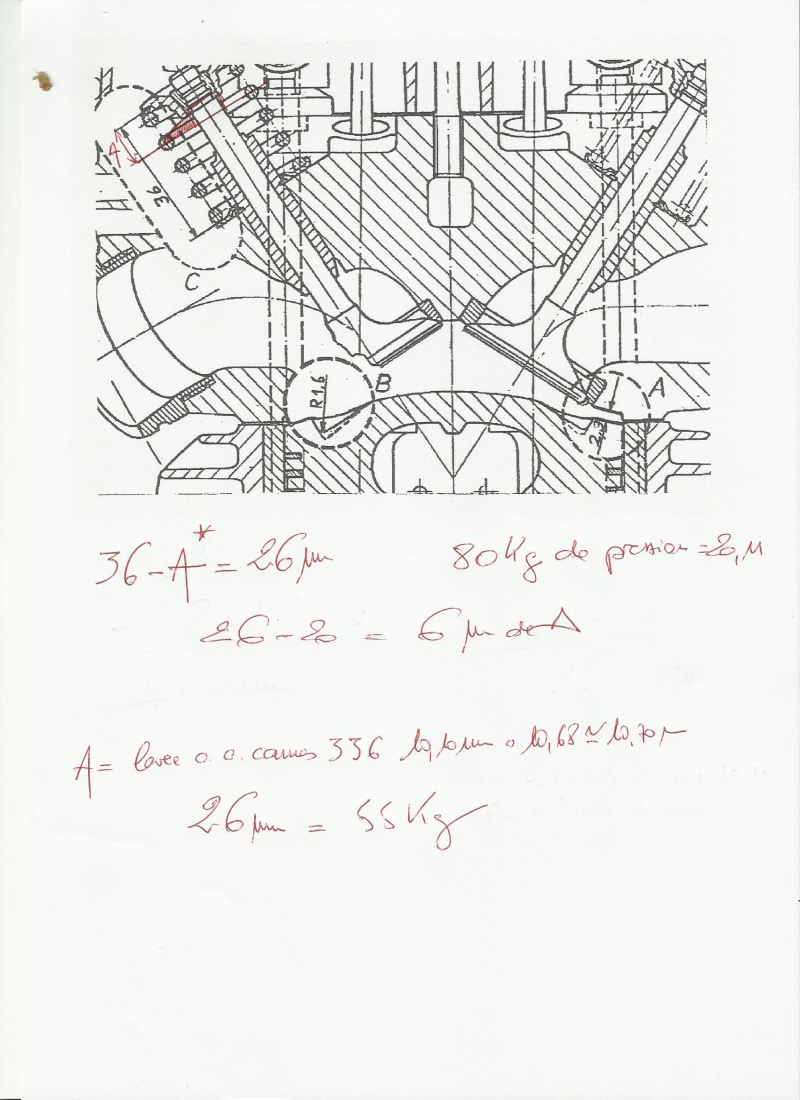 A
36
C
R1,6
B
A
2,3
36 - A* = 26 mm 80 Kg de pression = 20,
26 - 20 = 6 mm de
A = levee a. c. cames 336 10,68 ≃ 10,70
26 mm = 55 Kg